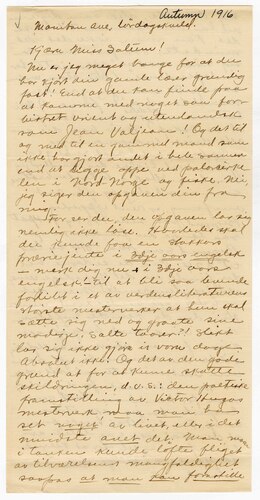 Autumn 1916
Manitou ave, lördagskveld.
Kjære Miss
Nu er jeg meget bange for at du
har gjort din gamle lærer grundig
fast! End at du kan finde paa
at komme med noget saa for-
birket urient og utenlandsk
som Jean Valjean! Og det til
og med til en gammel mand som
ikke har gjort andet i hele
end at ligge oppe ved
len i Nord Norge og fiske. Nei
jeg siger den opgaven din fra
mig.
For ser du, den opgaven lar sig
nemlig ikke løse. Hvorledes skal
du kunde faa en stakkars
præriejente i 3dje aars engelsk
— merk dig nu — i 3dje aars
engelsk, til at bli saa levende
fortært i et av verdensliteraturens
største mesterverker at hun skal
sætte sig ned og graate sine
modige, salte taarer? Slikt
lar sig ikke gjøre i vore dage
Absolut ikke! Og det av den gode
grund at for at kunne
skildringen, d.v.s. den poetiske
fremstilling av Victor Hugos
mesterverk maa man ha
set noget av livet, eller i det
mindste anet det. Man maa
i tanken kunde lofte fliget
av tilværelsens mangfoldighet
saapas at man kan forestille